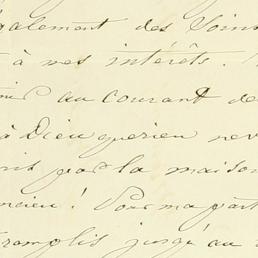 également des Soins
à mes intérêts.
au courant de
à Dieu que rien ne v
par la maison
! Pour ma part
remplis jusqu'au